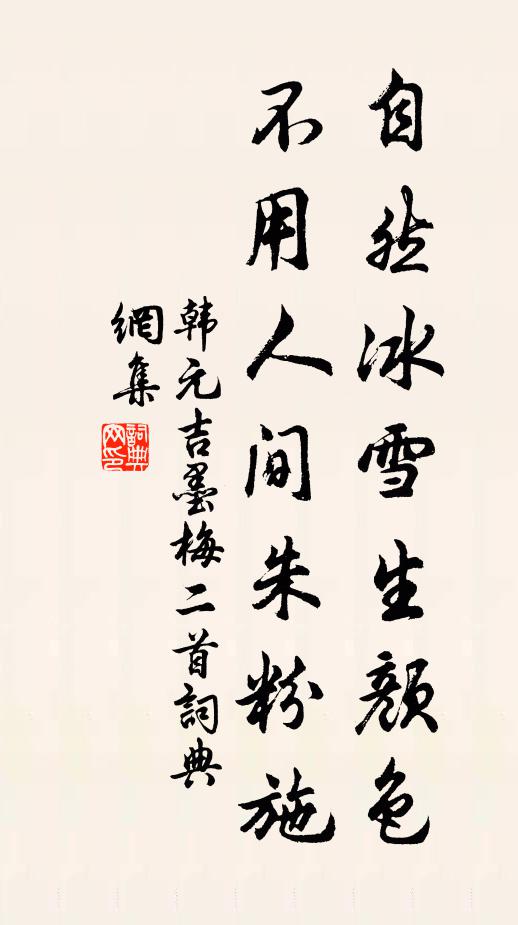 自然冰雪生顏色
不用人间朱粉施
韩元吉墨梅二首詞典
網集
詞典网印